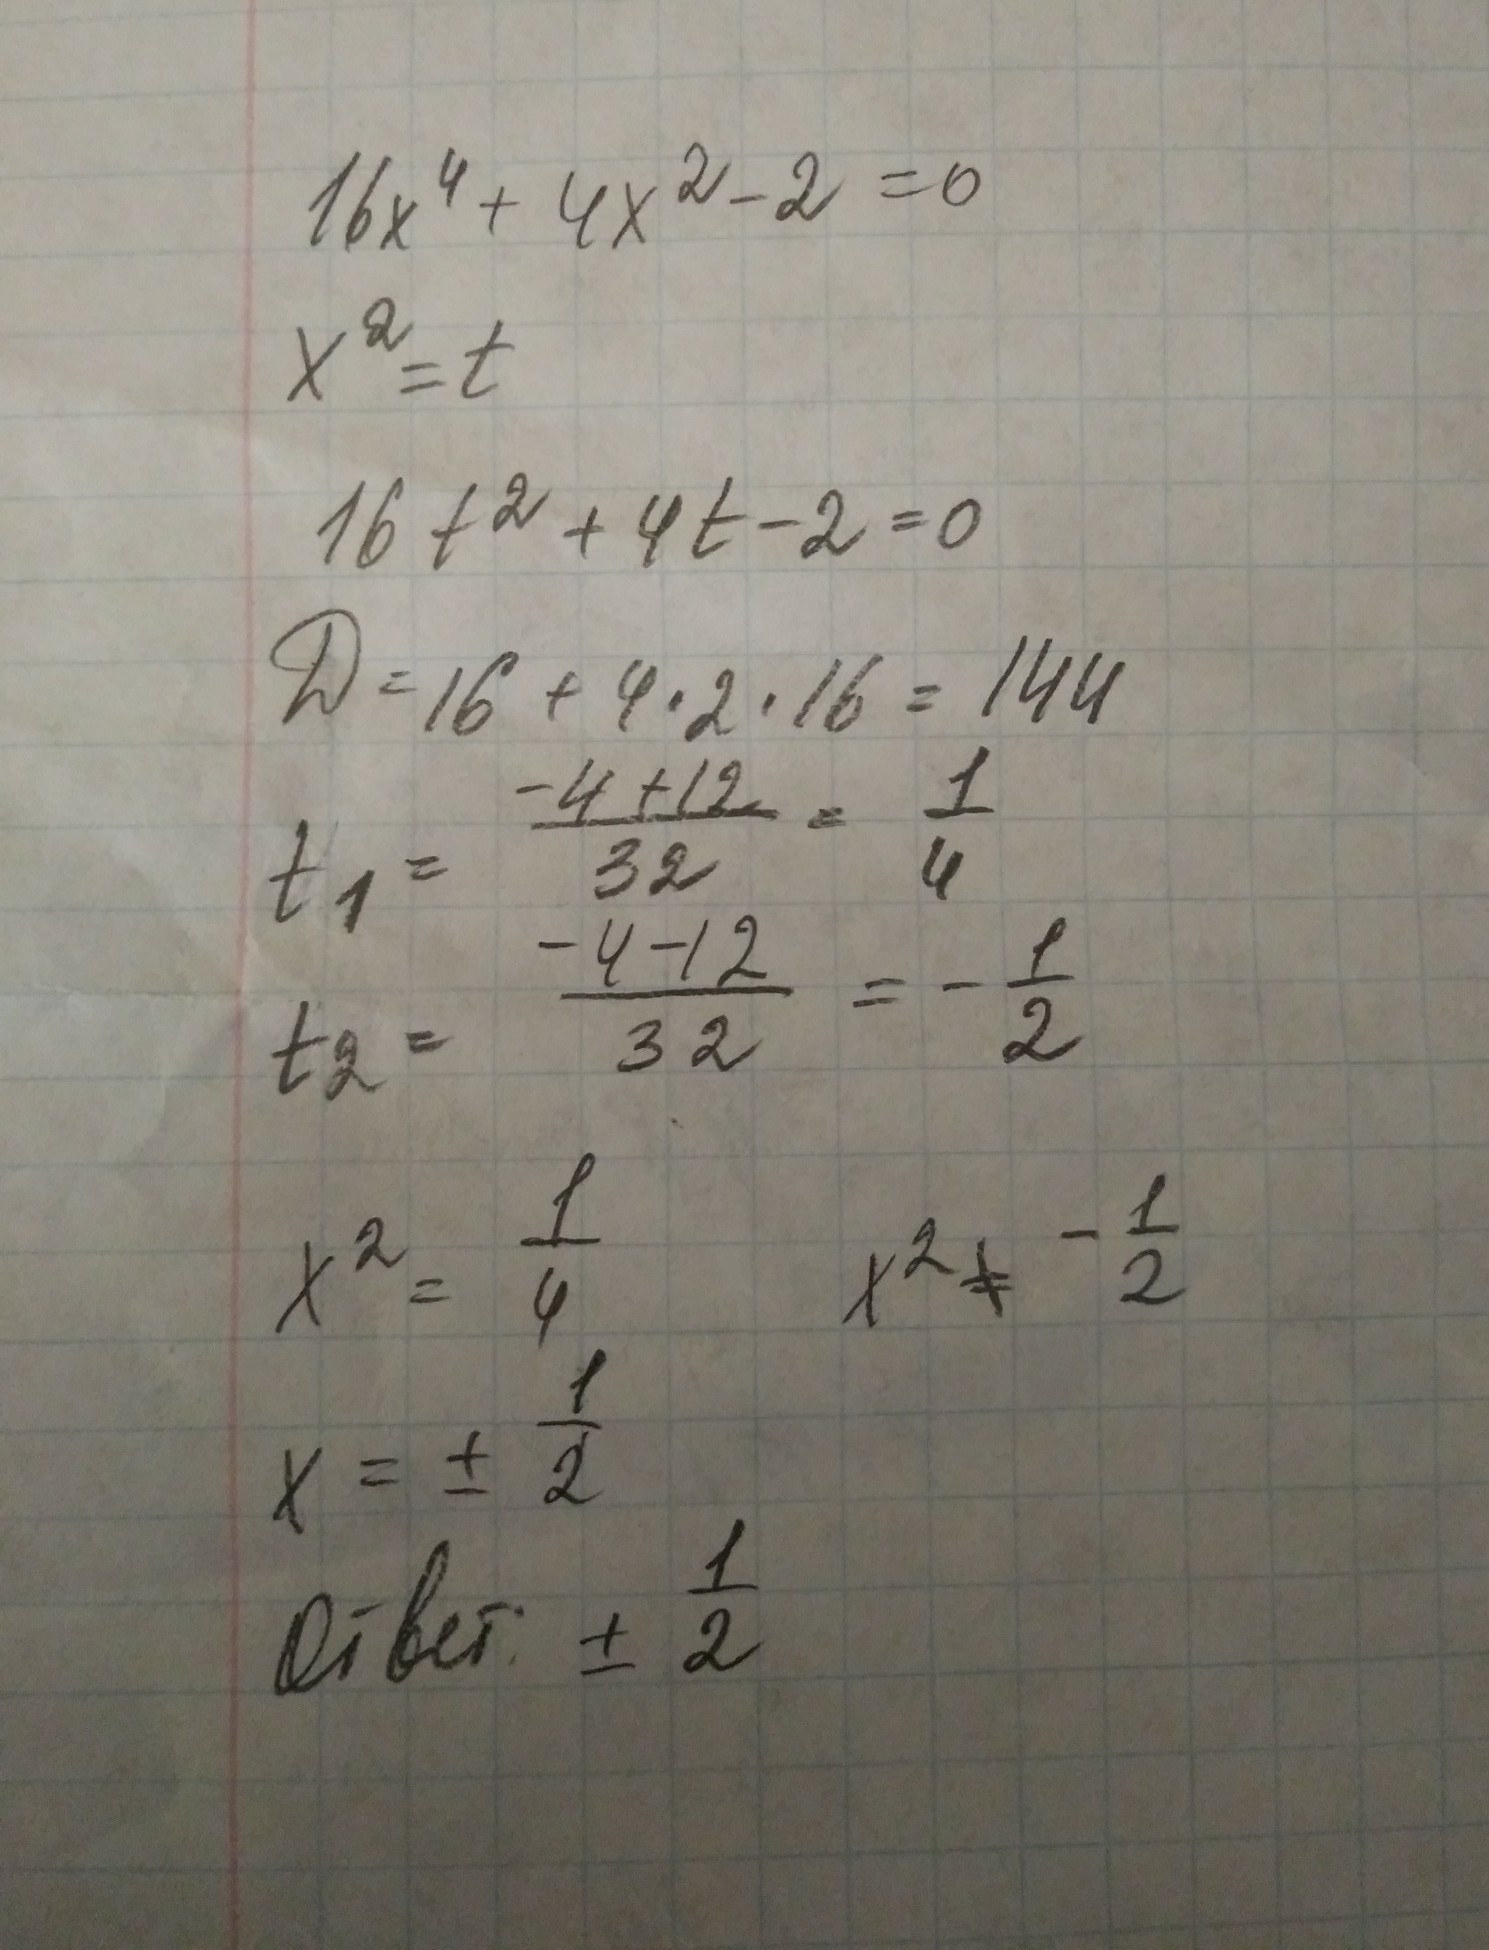 16x⁴ + 4x² - 2 = 0
x² = t
16t² + 4t - 2 = 0
D = 16 + 4·2·16 = 144
t₁ = (-4+12)/32 = 1/4
t₂ = (-4-12)/32 = -1/2
x² = 1/4 x² ≠ -1/2
x = ± 1/2
Ответ: ± 1/2